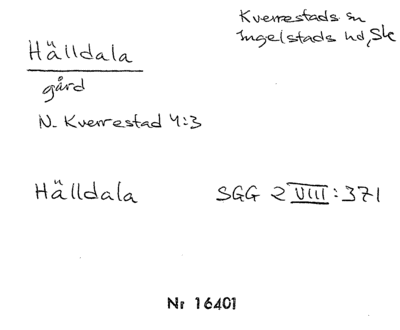 Kverrestads sn
Ingelstads hd, Sk
Hälldala
gård
N. Kverrestad 4:3
Hälldala SGG 2 VIII:371
Nr 16401